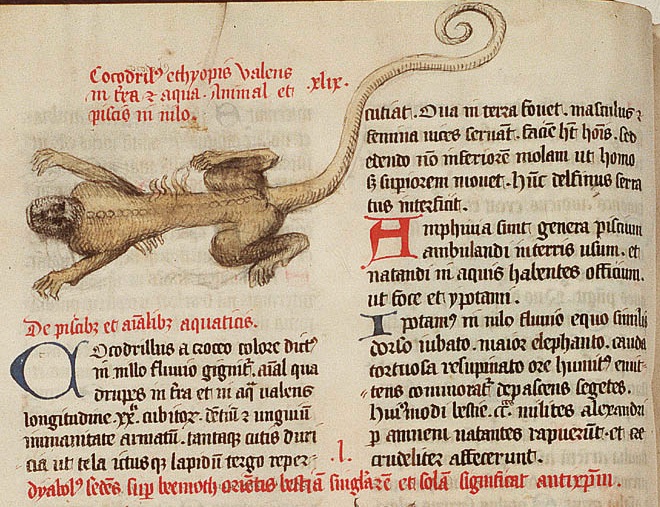 Cocodrilꝰ ethyopis valens
in t̄ra ⁊ aqua. Animal et
piscis in nilo.
.xlix.
De piscibꝫ et aīalibꝫ aquaticis.
Cocodrillus a crocco colore dictꝰ
in nillo fluuio gignit᷑. aīal qua
drupes in t̄ra et in aq̄ valens
longitudine .xx. cubitoꝝ. dētiū ⁊ unguiū
inmanitate armatū. tantaqꝫ cutis duri
cia ut tela ictusqꝫ lapidū tergo reper
cutiat. Oua in terra fouet. masculus ⁊
femina uices seruāt. faciē hꝫ hoīs. sed
edendo nō inferiorē molam ut homo
sꝫ supiorem mouet. hūc delfinus serra
tus interficit.
Amphiuia sunt genera piscium
ambulandi in terris usum. et
natandi in aquis habentes officium.
ut foce et ypotami.
Ipotamꝰ in nilo fluuio equo similis
dorso iubato. maior elephanto. cauda
tortuosa resupinato ore
tens commorat᷑ depascens segetes.
huiꝰmodi bestie .cc. milites alexandri
ꝑ amnem natantes rapuerūt. et
crudeliter affecerunt.
.l.
dyabolꝰ sedēs suꝑ beemoth orientis bestiā singłarē et solā significat antixp̄m.